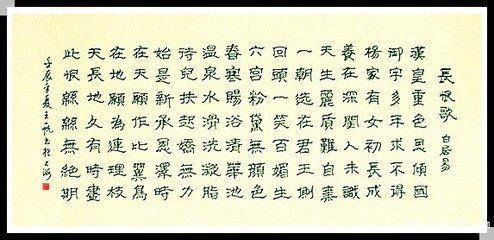 長恨歌 白居易
漢皇重色思傾國
御宇多年求不得
楊家有女初長成
養在深閨人未識
天生麗質難自棄
一朝選在君王側
回頭一笑百媚生
六宮粉黛無顏色
春寒賜浴清華池
溫泉水滑洗凝脂
侍兒扶起嬌無力
始是新承恩澤時
在天願作比翼鳥
在地願為連理枝
天長地久有時盡
此恨綿綿無絕期
壬辰年夏王帆書於上海